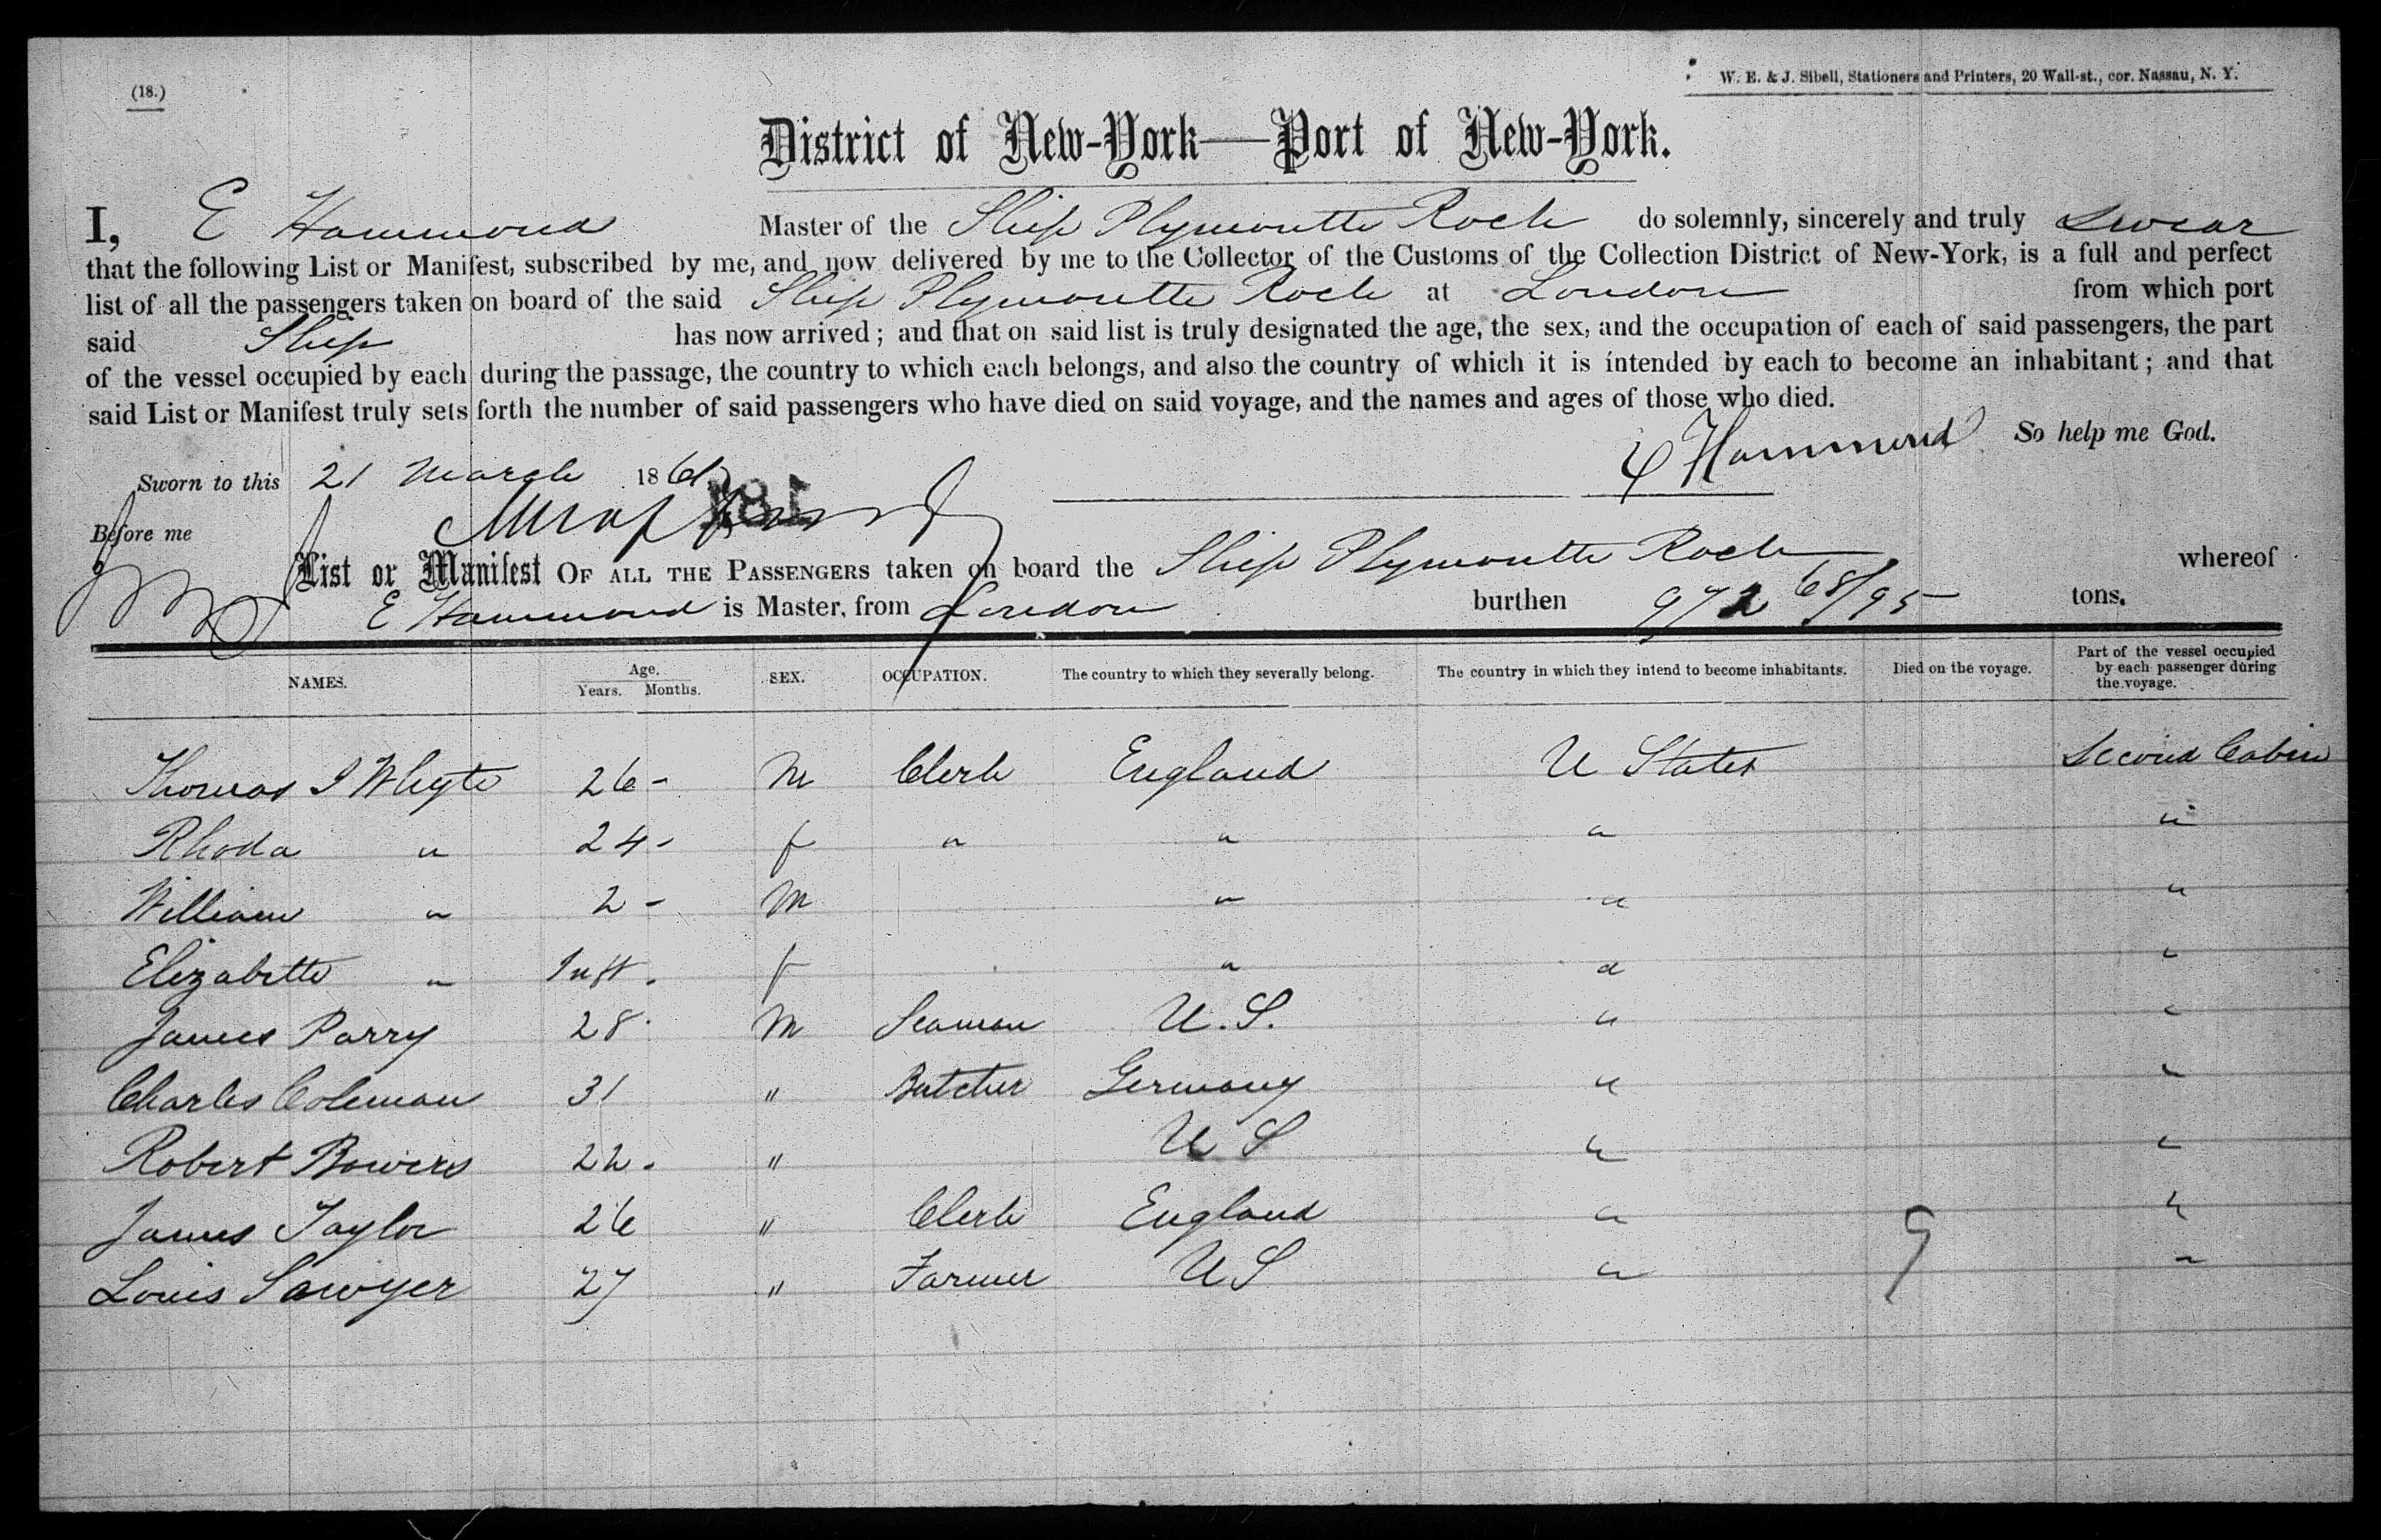 (18.)
W. E. & J. Sibell, Stationers and Printers, 20 Wall-st., cor. Nassau, N. Y.
District of New-York—Port of New-York.
I, E Hammond Master of the Ship Plymouth Rock do solemnly, sincerely and truly swear
that the following List or Manifest, subscribed by me, and now delivered by me to the Collector of the Customs of the Collection District of New-York, is a full and perfect
list of all the passengers taken on board of the said Ship Plymouth Rock at London from which port
said Ship has now arrived; and that on said list is truly designated the age, the sex, and the occupation of each of said passengers, the part
of the vessel occupied by each during the passage, the country to which each belongs, and also the country of which it is intended by each to become an inhabitant; and that
said List or Manifest truly sets forth the number of said passengers who have died on said voyage, and the names and ages of those who died.
E Hammond So help me God.
Sworn to this 21 March 1861
181
Before me
List or Manifest OF ALL THE PASSENGERS taken on board the Ship Plymouth Rock whereof
E Hammond is Master, from London burthen 972 68/95 tons.
NAMES. Age. Years. Months. SEX. OCCUPATION. The country to which they severally belong. The country in which they intend to become inhabitants. Died on the voyage. Part of the vessel occupied by each passenger during the voyage.
Thomas J Whyte 26 - M Clerk England U States Second Cabin
Rhoda " 24 - f " " " "
William " 2 - M " " "
Elizabeth " Inft. f " " "
James Parry 28 M Seaman U.S. " "
Charles Coleman 31 " Butcher Germany " "
Robert Bowers 22 . " U S " "
James Taylor 26 " Clerk England " "
Louis Sawyer 27 " Farmer U S " "
9